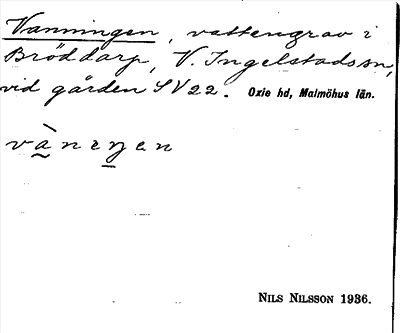 Vanningen, vattengrav i
Bröddarp, V. Ingelstads sn,
vid gården SV22. Oxie hd, Malmöhus län.
vànɩŋen
NILS NILSSON 1936.